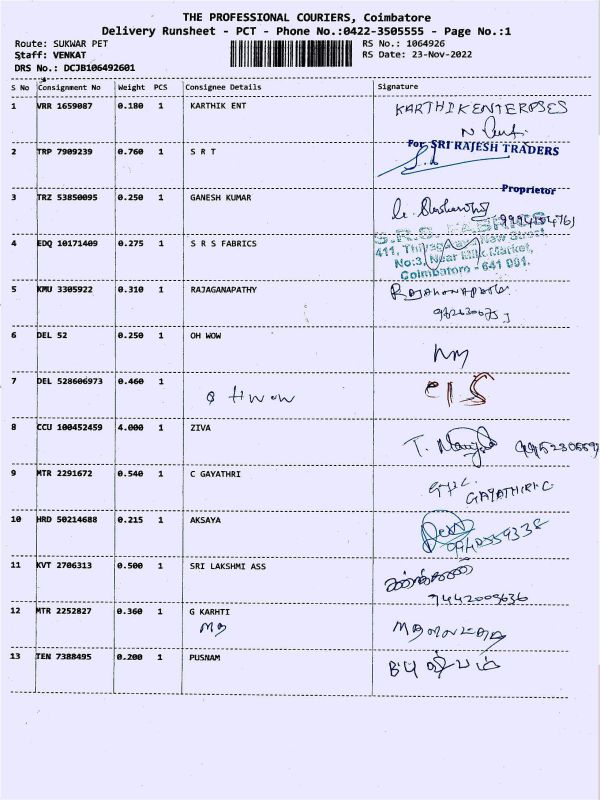 THE PROFESSIONAL COURIERS, Coimbatore
Delivery Runsheet - PCT - Phone No.:0422-3505555 - Page No.:1
Route: SUKWAR PET RS No.: 1064926
Staff: VENKAT RS Date: 23-Nov-2022
DRS No.: DCJB106492601
S No Consignment No Weight PCS Consignee Details Signature
1 VRR 1659087 0.180 1 KARTHIK ENT KARTHIKENTERPSES
2 TRP 7909239 0.760 1 S R T For SRI RAJESH TRADERS
Proprietor
3 TRZ 53850095 0.250 1 GANESH KUMAR
4 EDQ 10171409 0.275 1 S R S FABRICS S.R.S. FABRICS
411, Thiyagaraya New Street
No:3, Near Milk Market,
Coimbatore - 641 001.
5 KMU 3305922 0.310 1 RAJAGANAPATHY
6 DEL 52 0.250 1 OH WOW
7 DEL 528606973 0.460 1 OHWOW
8 CCU 100452459 4.000 1 ZIVA
9 MTR 2291672 0.540 1 C GAYATHRI
GAYATHIRI.C
10 HRD 50214688 0.215 1 AKSAYA
9940559338
11 KVT 2706313 0.500 1 SRI LAKSHMI ASS
9442005636
12 MTR 2252827 0.360 1 G KARHTI
13 TEN 7388495 0.200 1 PUSNAM